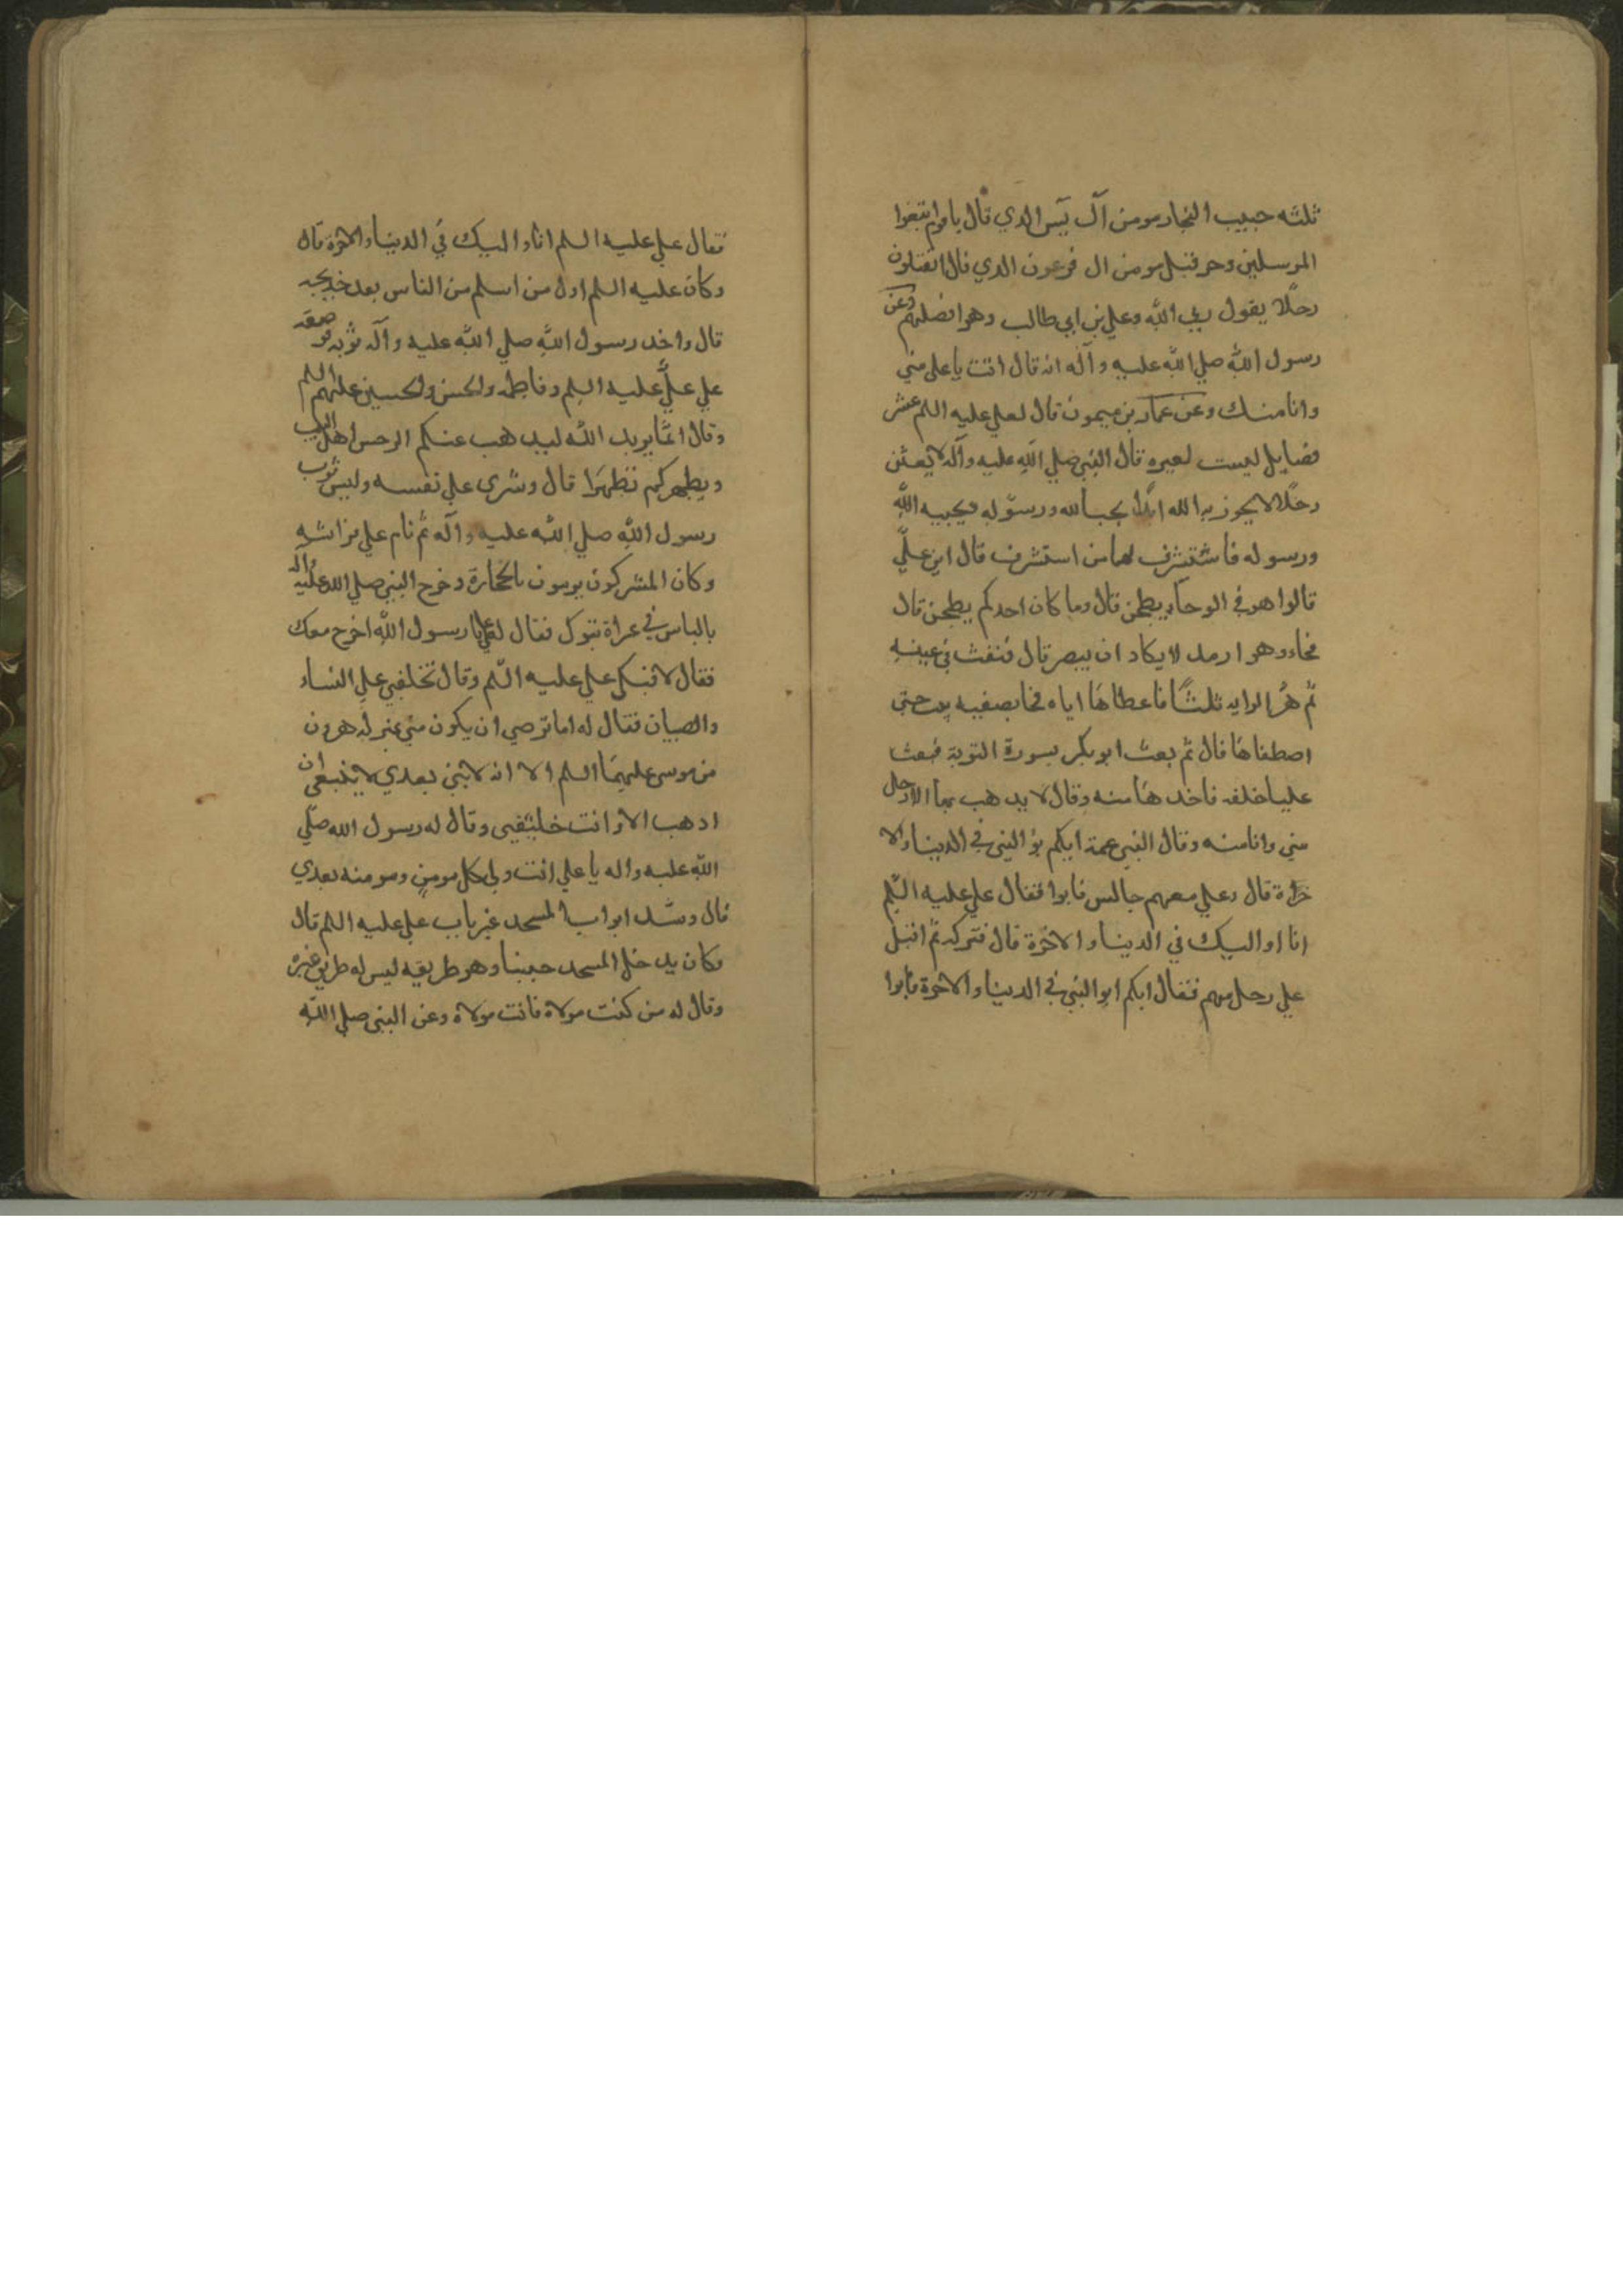 ثلثه حبيب النجار مومن آل يٓس الدي قال ياقوم اتبعوا
المرسلين وحرقيل مومن ال فرعون الدي قال اتقتلون
رجلًا يقول ربي الله وعلي بن ابي طالب وهو افضلهم وعن
رسول الله صلي الله عليه وآله انه قال انت يا علي مني
وانا منك وعن عمار بن ميمون قال لعلي عليه السلم عشر
فضايل ليست لغيره قال النبي صلي الله عليه وآله لابعثن
رجلًا لا يخزيه الله ابدًا يحب الله ورسوله ويحبه الله
ورسوله فاستشرف لها من استشرف قال اين عليّ
قالوا هو في الرحآء يطحن قال وما كان احدكم يطحن قال
فجاء وهو ارمد لا يكاد ان يبصر قال فنفث في عينه
ثم هز الرايه ثلثًا فاعطاها اياه فجا بصفيه بنت حيى
اصطفاها قال ثم بعث ابو بكر بسورة التوبة فبعث
عليا خلفه فاخدها منه وقال لا يدهب بها الا رجل
مني وانا منه وقال النبي عمه ايكم يوالينى في الدينا والا
خرة قال وعلي معهم جالس فابوا فقال علي عليه السلم
انا اواليك في الدينا والاخرة قال فتركه ثم اقبل
علي رجل منهم فقال ايكم يوالينى في الدينا والاخرة فابوا
فقال علي عليه السلم انا اواليك في الدينا والاخرة قال
وكان عليه السلم اول من اسلم من الناس بعد خديجه
قال واخد رسول الله صلي الله عليه وآله ثوبه فوضعه
علي عليّ عليه السلم وفاطمه والحسن والحسين عليهم السلم
وقال انما يريد الله ليدهب عنكم الرجس اهل البيت
ويطهركم تطهيرًا قال وشرى علي نفسه ولبس ثوب
رسول الله صلي الله عليه وآله ثم نام علي فراشه
وكان المشركون يرمون بالحجارة وخرج النبي صلي الله عليه واله
بالناس في غزاة تبوك فقال له علي يا رسول الله اخرج معك
فقال لا فبكى علي عليه السلم وقال تخلفني علي النساء
والصبيان فقال له اما ترضي ان يكون مني بمنزلة هرون
من موسى عليهما السلم الا انه لا نبي بعدي لا ينبغي ان
ادهب الا وانت خليفتي وقال له رسول الله صلّي
الله عليه واله يا علي انت ولي كل مومن ومومنه بعدي
قال وسد ابواب المسجد غير باب علي عليه السلم قال
وكان يدخل المسجد جنبا وهو طريقه ليس له طريق غيره
وقال له من كنت مولاه فانت مولاه وعن النبي صلي الله